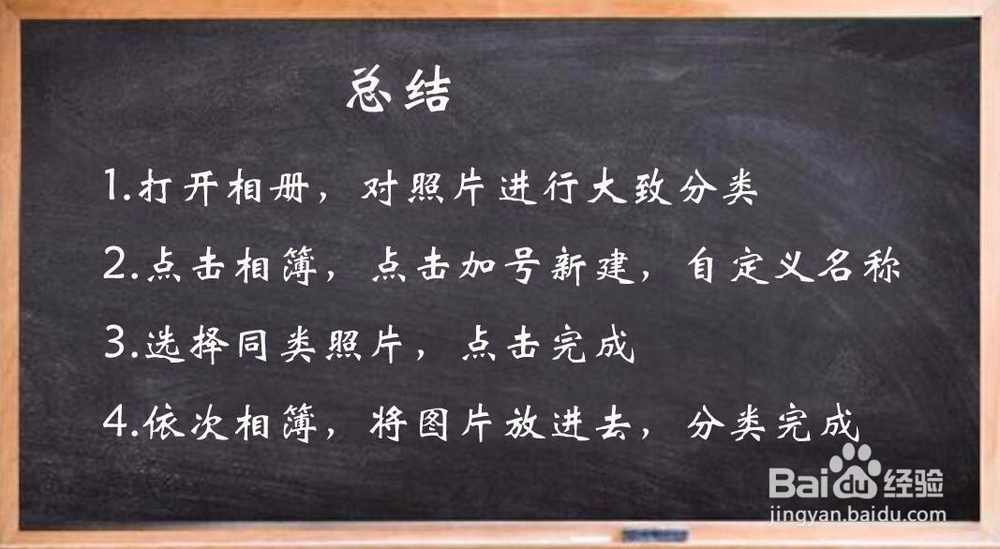 总结
1.打开相册，对照片进行大致分类
2.点击相簿，点击加号新建，自定义名称
3.选择同类照片，点击完成
4.依次相簿，将图片放进去，分类完成
Baidu经验
jingyan.baidu.com